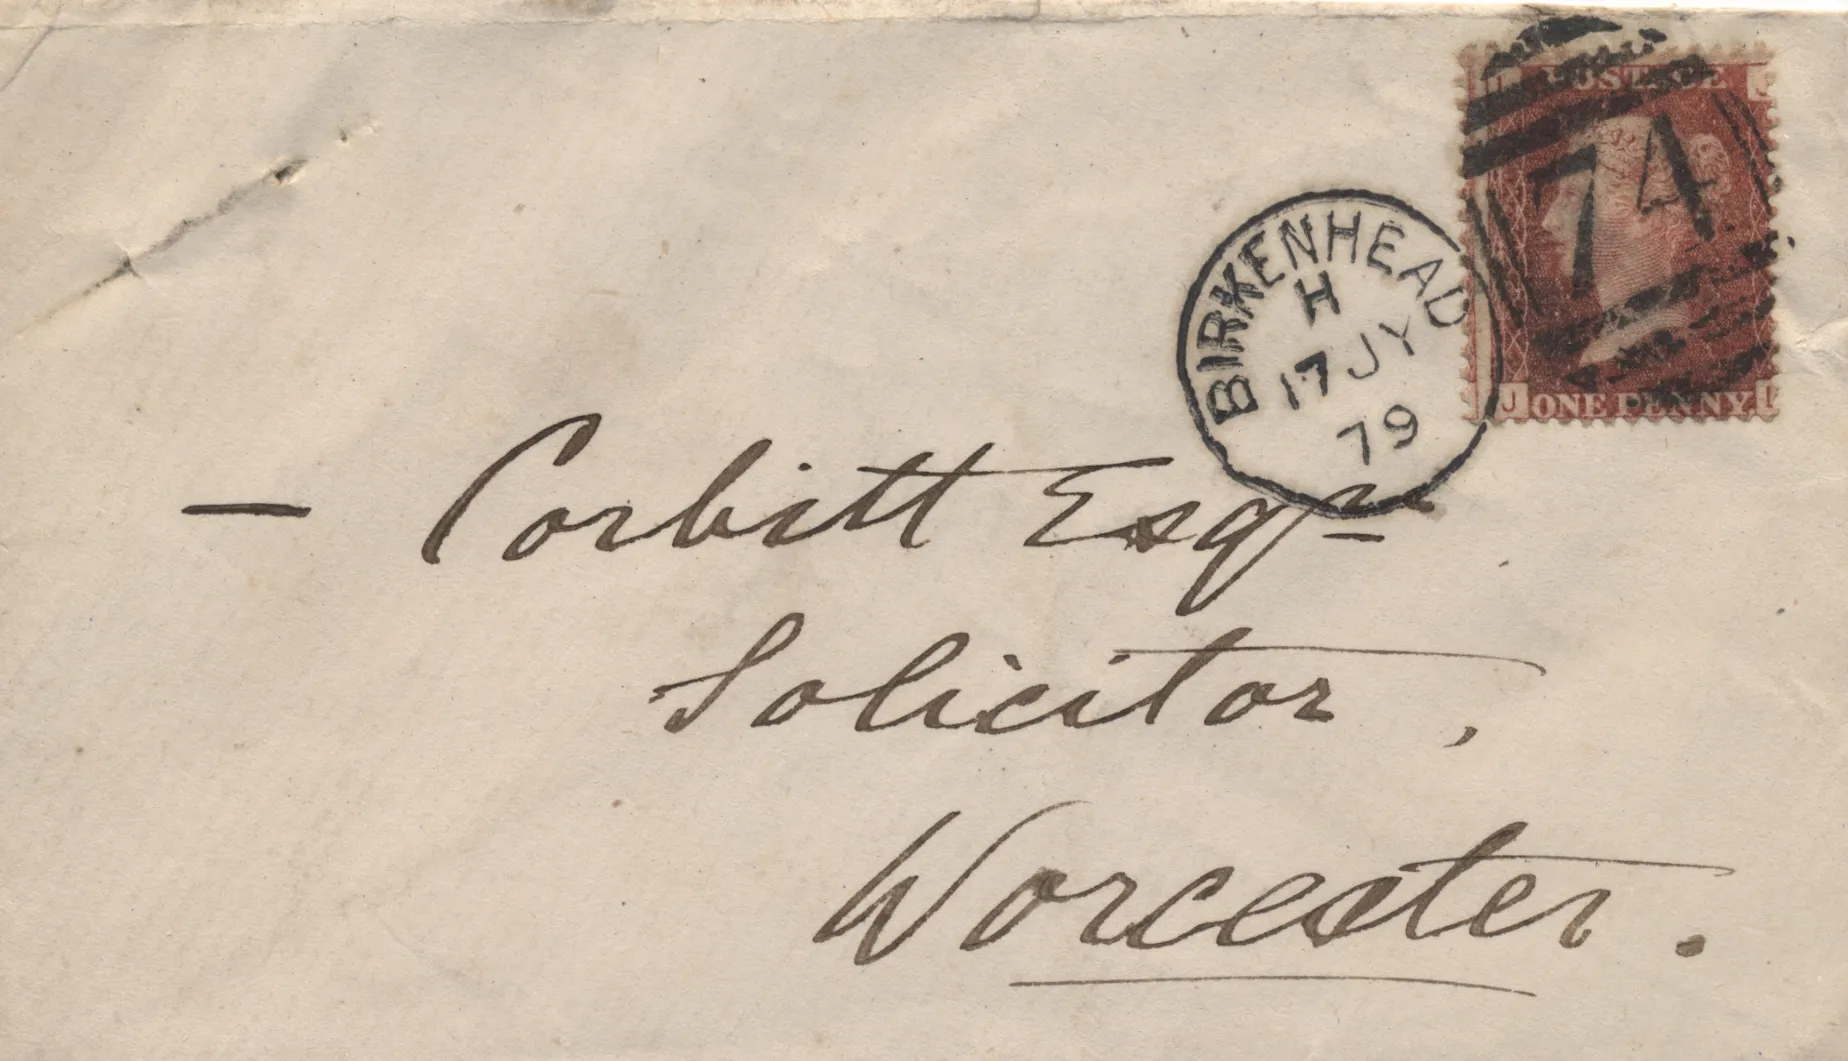 POSTAGE
74
BIRKENHEAD
H
17 JY
79
J ONE PENNY
— Corbitt Esqre
Solicitor,
Worcester.